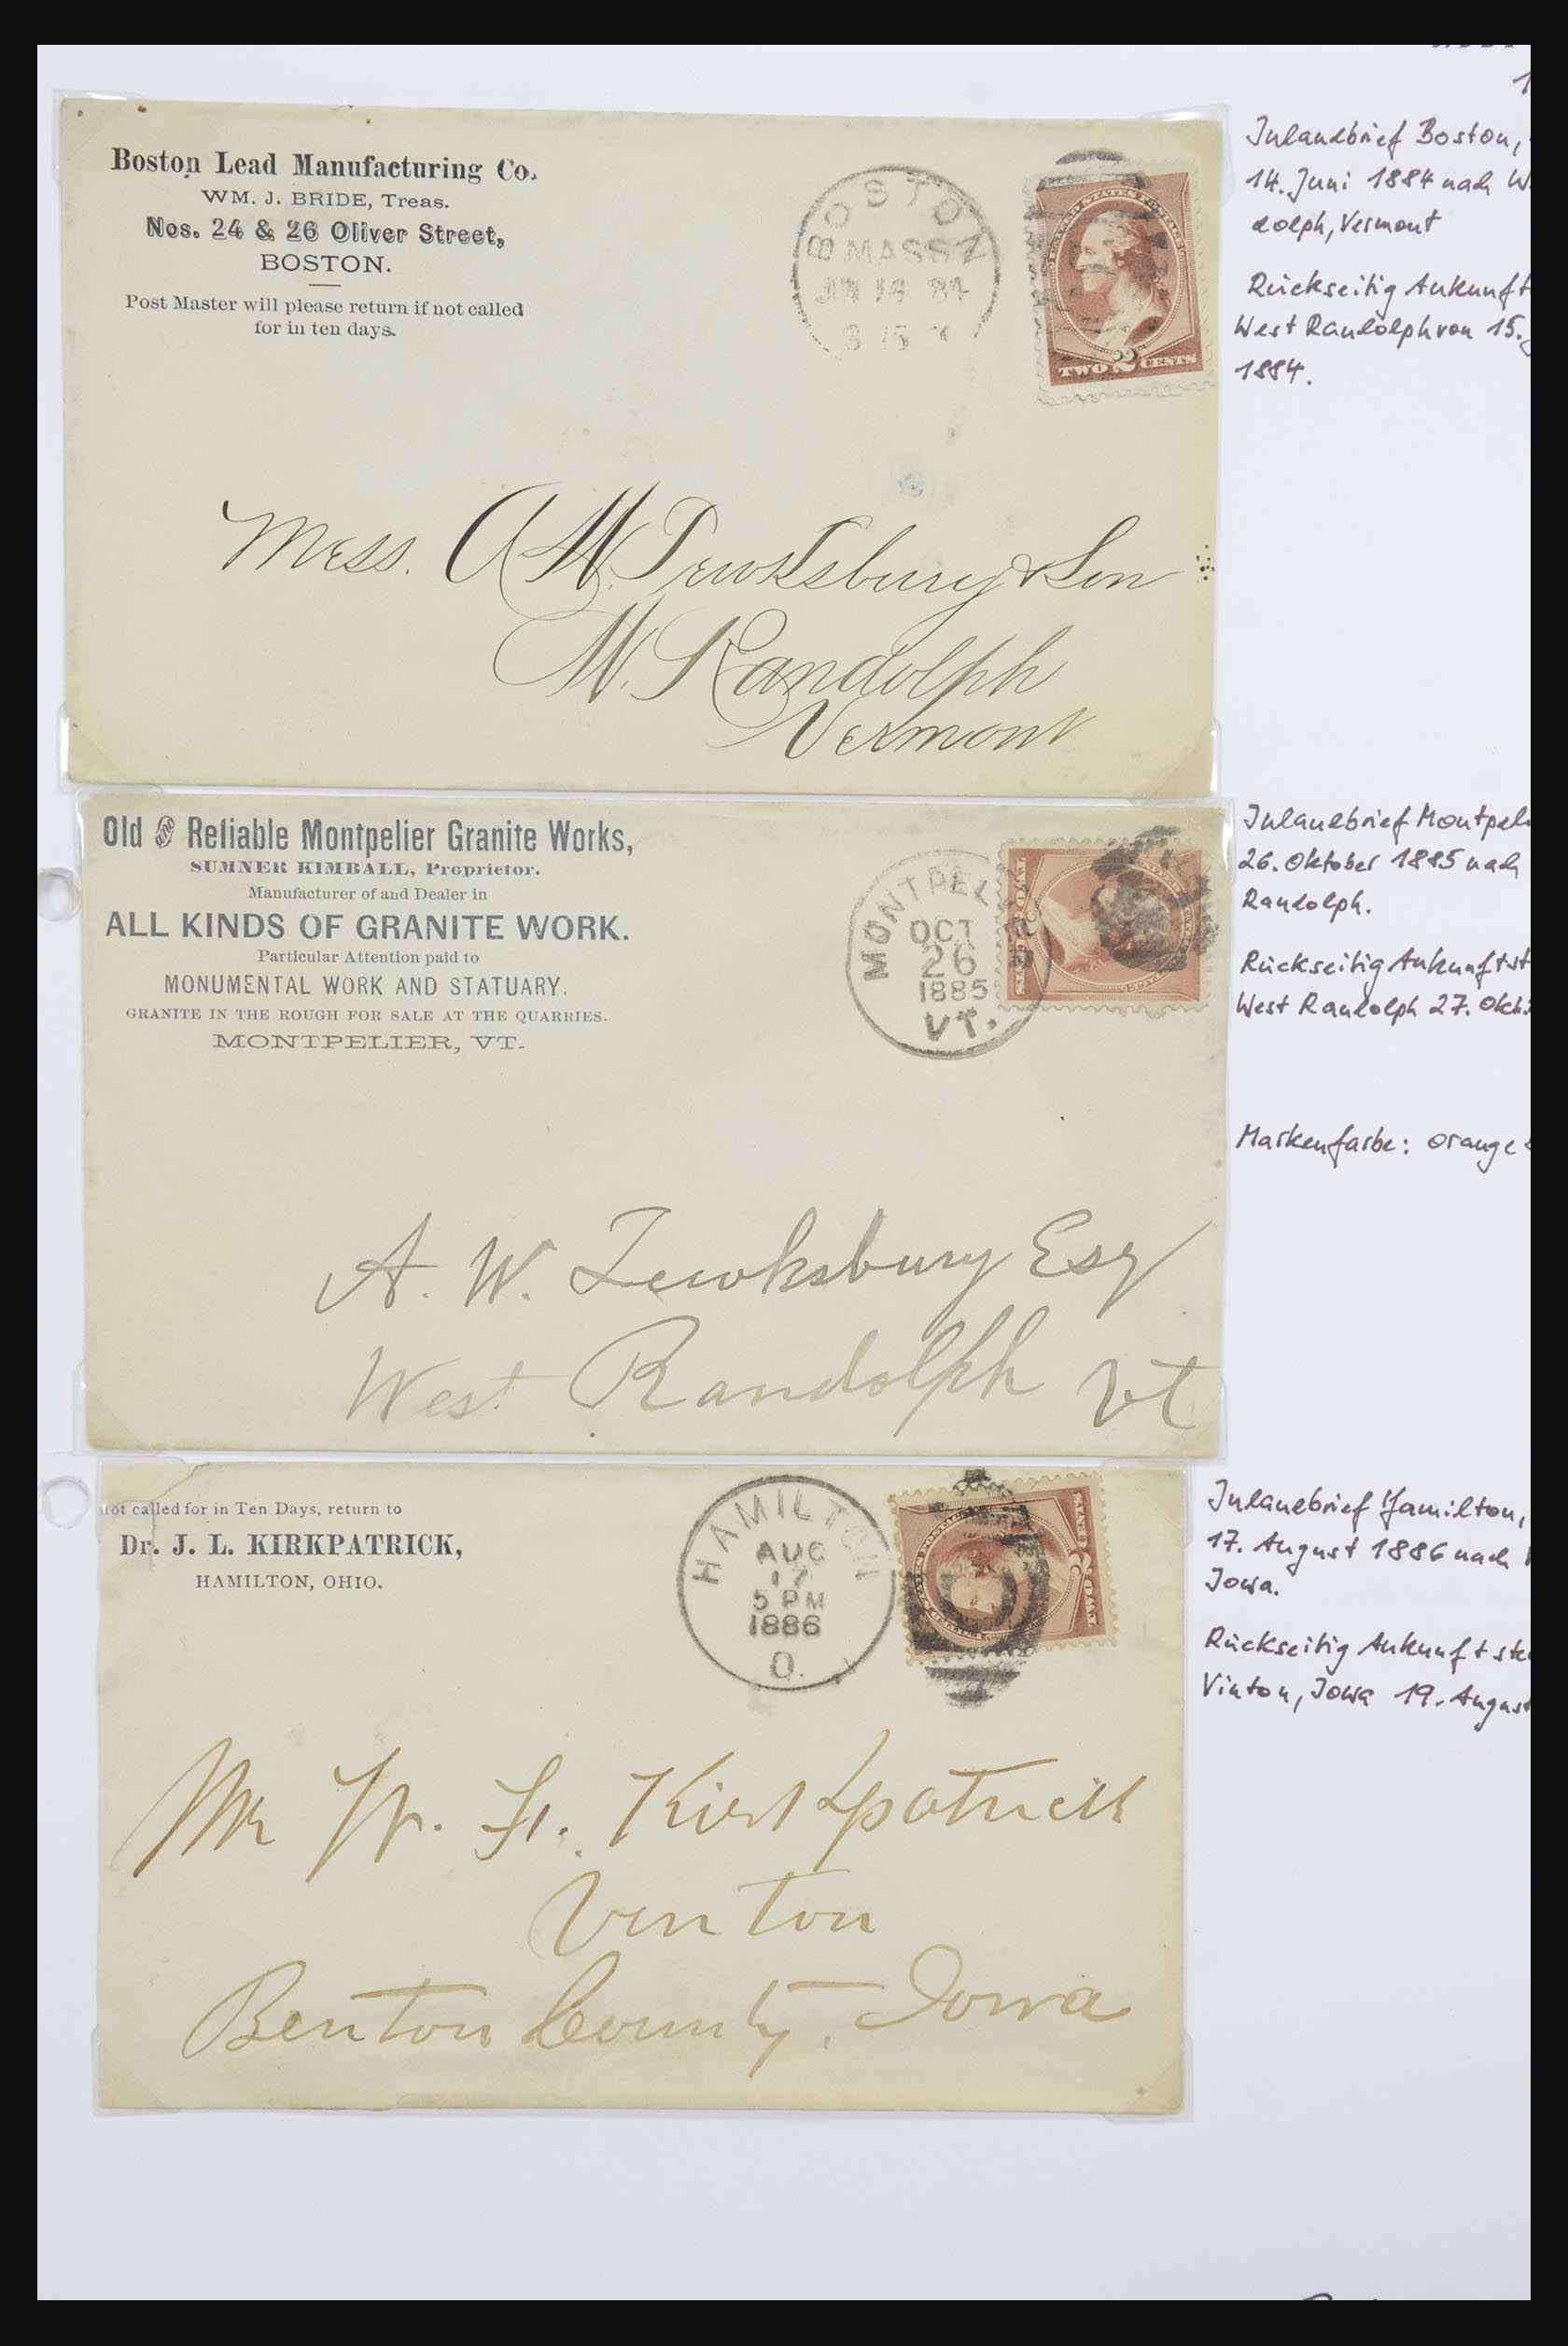 Boston Lead Manufacturing Co.
WM. J. BRIDE, Treas.
Nos. 24 & 26 Oliver Street,
BOSTON.
Post Master will please return if not called
for in ten days.
BOSTON
MASS
JUN 14 84
UNITED STATES POSTAGE
TWO 2 CENTS
Mess. A W. Tewksbury & Son
W. Randolph
Vermont
Inlandbrief Boston,
14. Juni 1884 nach W
dolph, Vermont
Rückseitig Ankunft
West Randolph von 15.
1884.
Old Reliable Montpelier Granite Works,
SUMNER KIMBALL, Proprietor.
Manufacturer of and Dealer in
ALL KINDS OF GRANITE WORK.
Particular Attention paid to
MONUMENTAL WORK AND STATUARY.
GRANITE IN THE ROUGH FOR SALE AT THE QUARRIES.
MONTPELIER, VT.
MONTPELIER
OCT
26
1885
VT.
A. W. Tewksbury Esq
West Randolph Vt
Inlandbrief Montpel
26. Oktober 1885 nach
Randolph.
Rückseitig Ankunftst
West Randolph 27. Okt.
Markenfarbe: orange
not called for in Ten Days, return to
Dr. J. L. KIRKPATRICK,
HAMILTON, OHIO.
HAMILTON
AUG
17
5 PM
1886
O.
TWO 2 CENTS
Mr W. F. Kirkpatrick
Vinton
Benton County, Iowa
Inlandbrief Hamilton,
17. August 1886 nach
Iowa.
Rückseitig Ankunftste
Vinton, Iowa 19. August